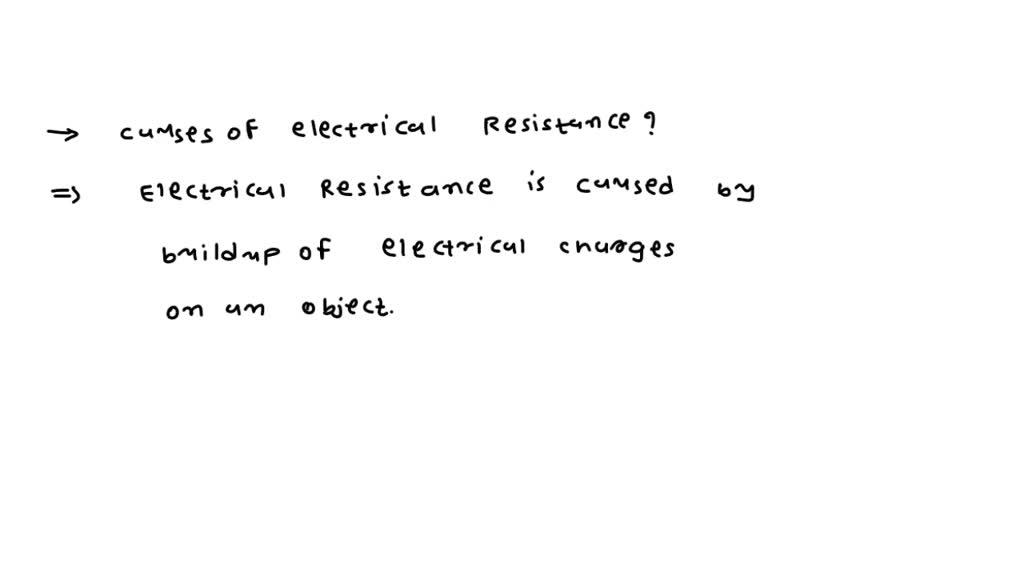 → causes of electrical Resistance?
⇒ Electrical Resistance is caused by
buildup of electrical charges
on an object.